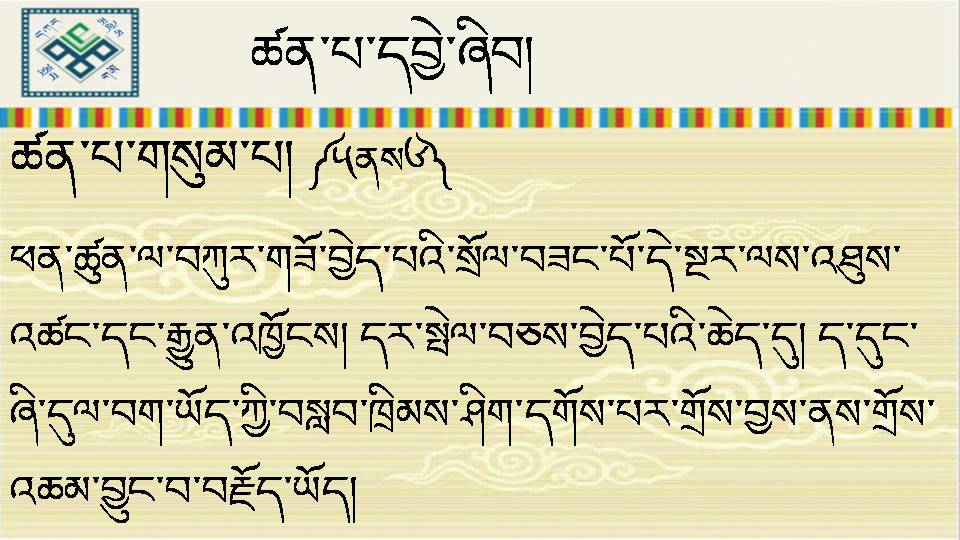 ཚན་པ་དབྱེ་ཞིབ།
ཚན་པ་གསུམ་པ། ༼༥ནས༦༽
ཕན་ཚུན་ལ་བཀུར་གཟོ་བྱེད་པའི་སྲོལ་བཟང་པོ་དེ་སྔར་ལས་འཐུས་
འཚང་དང་རྒྱུན་འཁྱོངས། དར་སྤེལ་བཅས་བྱེད་པའི་ཆེད་དུ། ད་དུང་
ཞི་དུལ་བག་ཡོད་ཀྱི་བསླབ་ཁྲིམས་ཤིག་དགོས་པར་གྲོས་བྱས་ནས་གྲོས་
འཆམ་བྱུང་བ་བརྗོད་ཡོད།